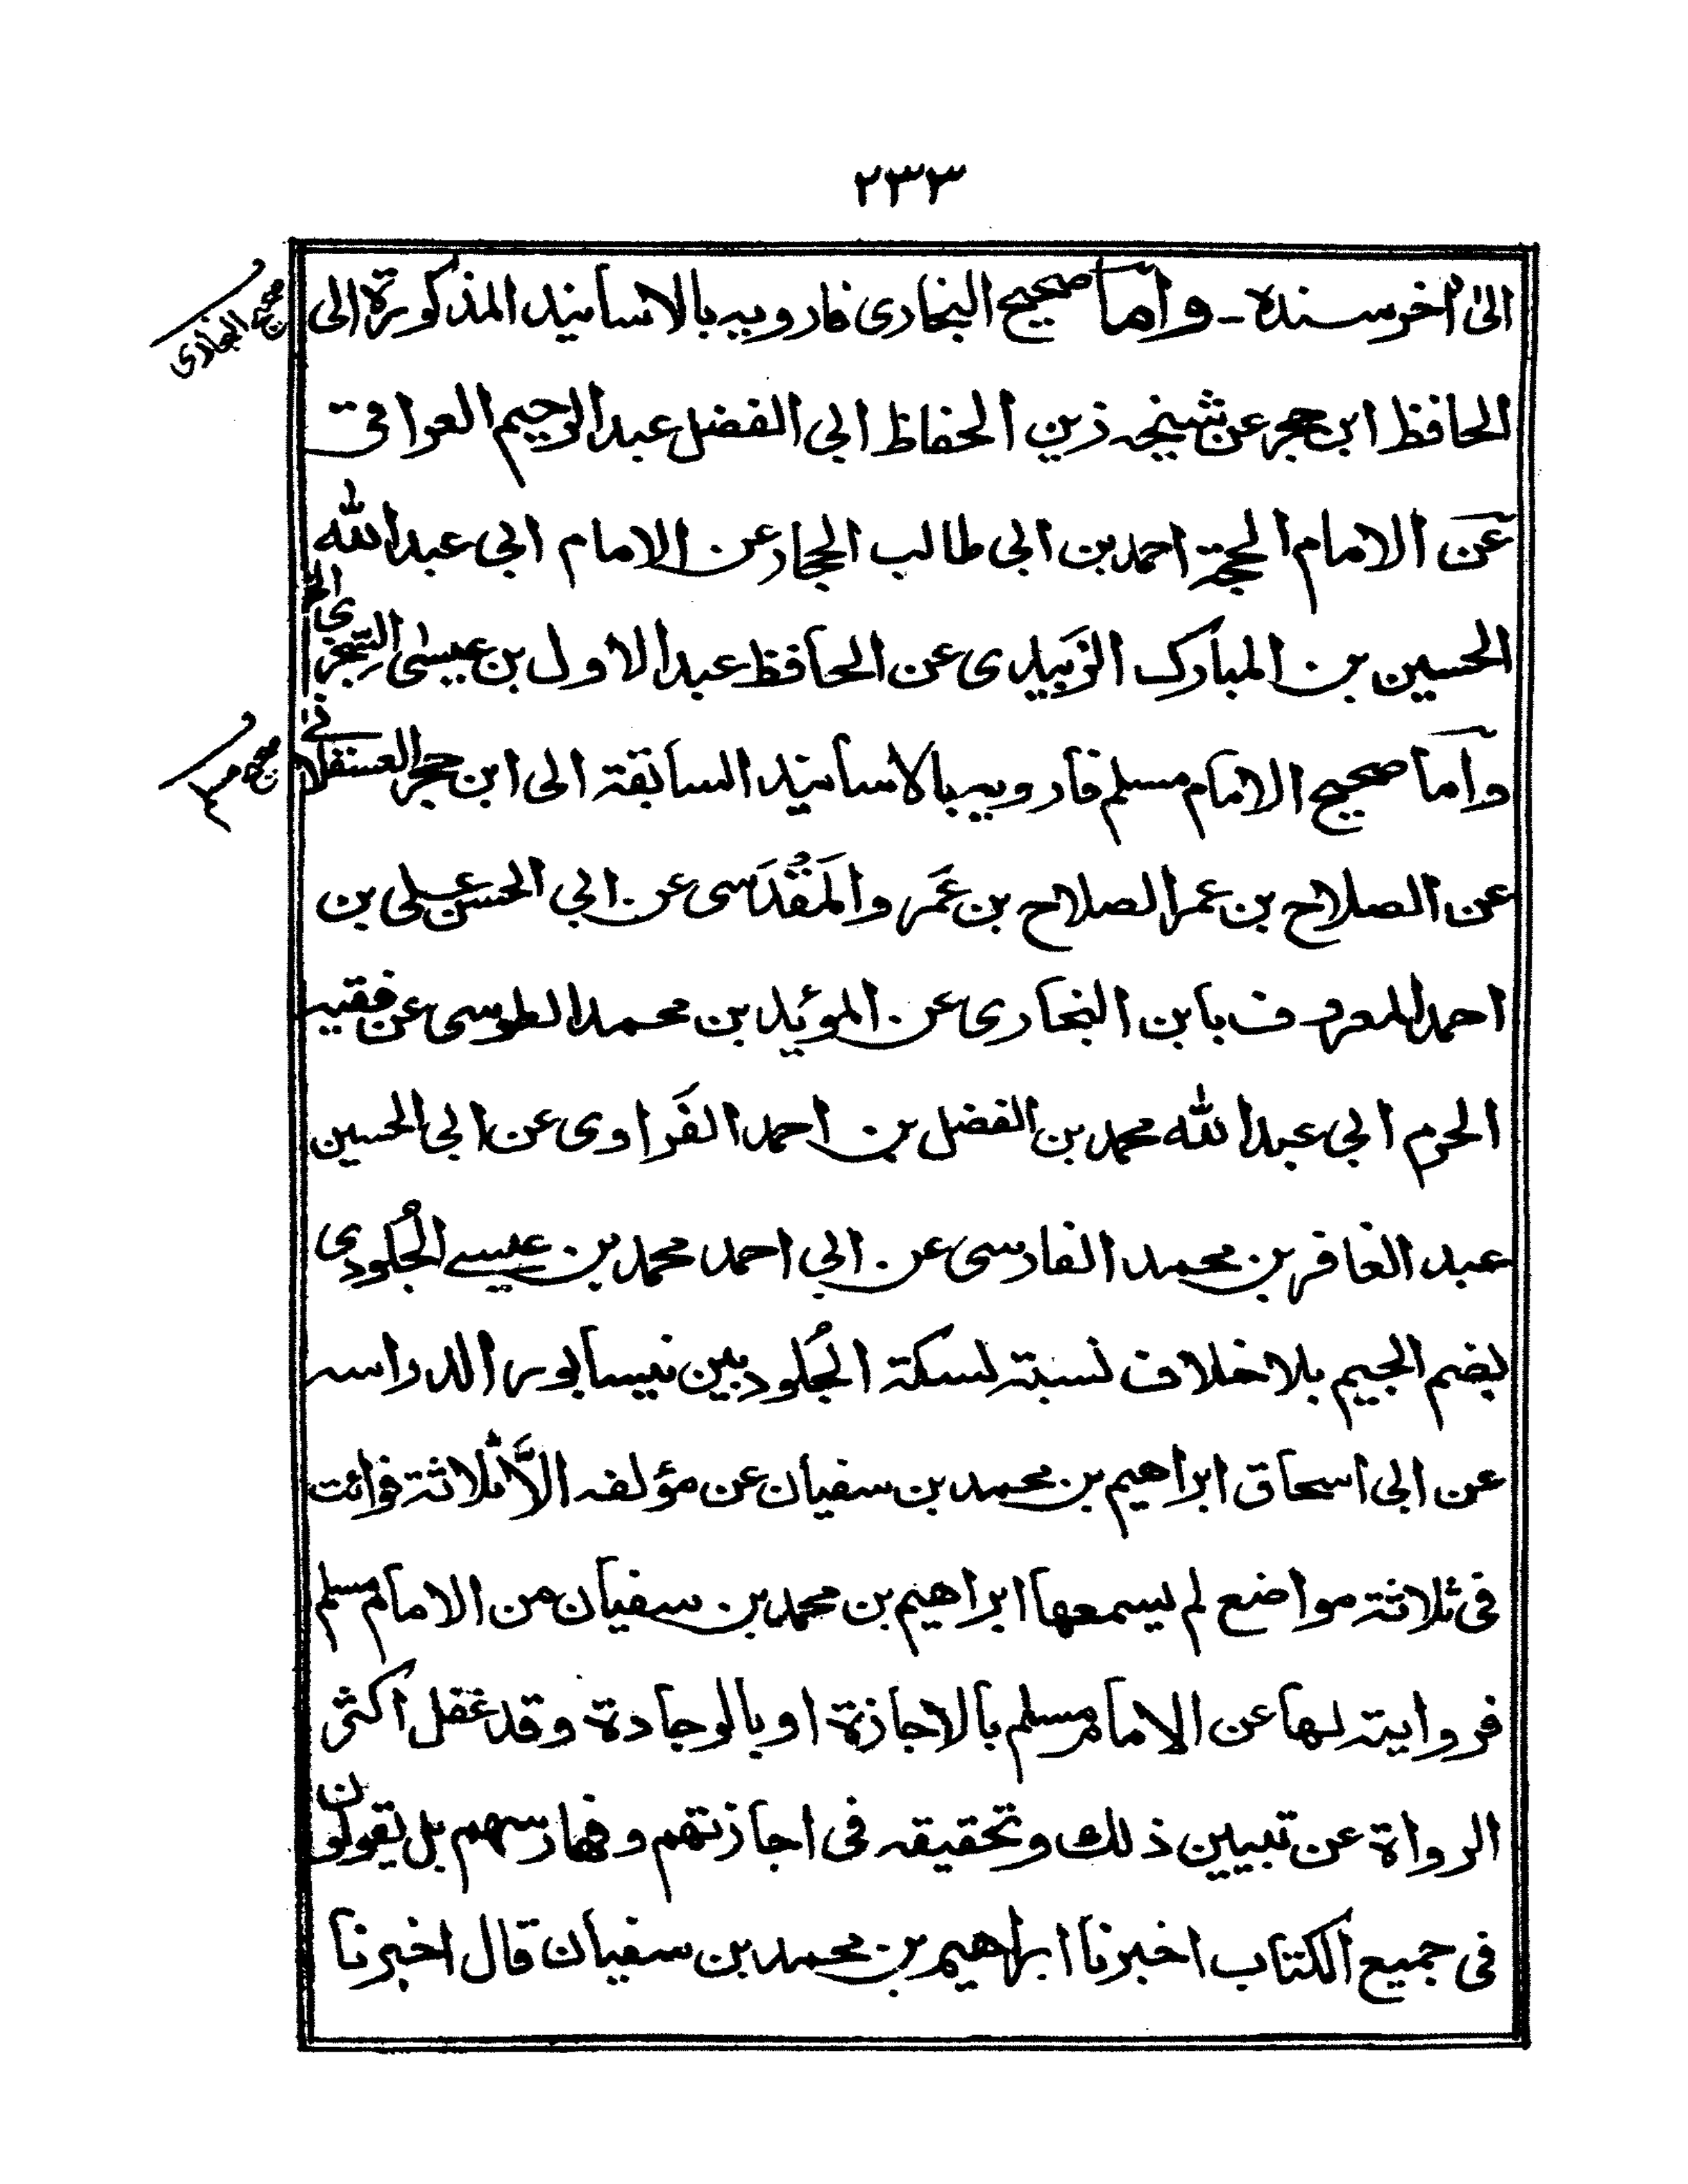 ٢٣٣
الىٰ اٰخر سنده ـ وامّا صحيح البخارى فارويه بالاسانيد المذكورة الى
صحيح البخارى
الحافظ ابن حجر عن شيخه زين الحفاظ ابى الفضل عبد الرحيم العراقى
عَن الامام الحجة احمد بن ابى طالب الحجار عن الامام ابى عبد الله
الحسين بن المبارك الزَبيدى عن الحافظ عبد الاول بن عيسىٰ السِّجزى الخ
وامّا صحيح الامام مسلم فارويه بالاسانيد السابقة الى ابن حجر العسقلانے
صحيح مسلم
عن الصلاح بن عمر الصلاح بن عَمَر والمَقْدَسى عن ابي الحسن على بن
احمد المعروف بابن البخارى عن المؤيد بن محمد الطوسى عن فقيه
الحرم ابى عبد الله محمد بن الفضل بن احمد الفَراوى عن ابى الحسين
عبد الغافر بن محمد الفارسى عن ابي احمد محمد بن عيسے الجُلودى
بضم الجيم بلا خلاف نسبة لسكة الجُلود بين نيسابور الدراسه
عن ابى اسحاق ابراهيم بن محمد بن سفيان عن مؤلفه الاَّ ثلاثة فوائت
فى ثلاثة مواضع لم يسمعها ابراهيم بن محمد بن سفيان من الامام مسلم
فروايته لها عن الامام مسلم بالاجازة او بالوجادة وقد غفل اكثر
الرواة عن تبيين ذلك وتحقيقه فى اجازتهم وفهارسهم بل يقولون
فى جميع الكتاب اخبرنا ابراهيم بن محمد بن سفيان قال اخبرنا